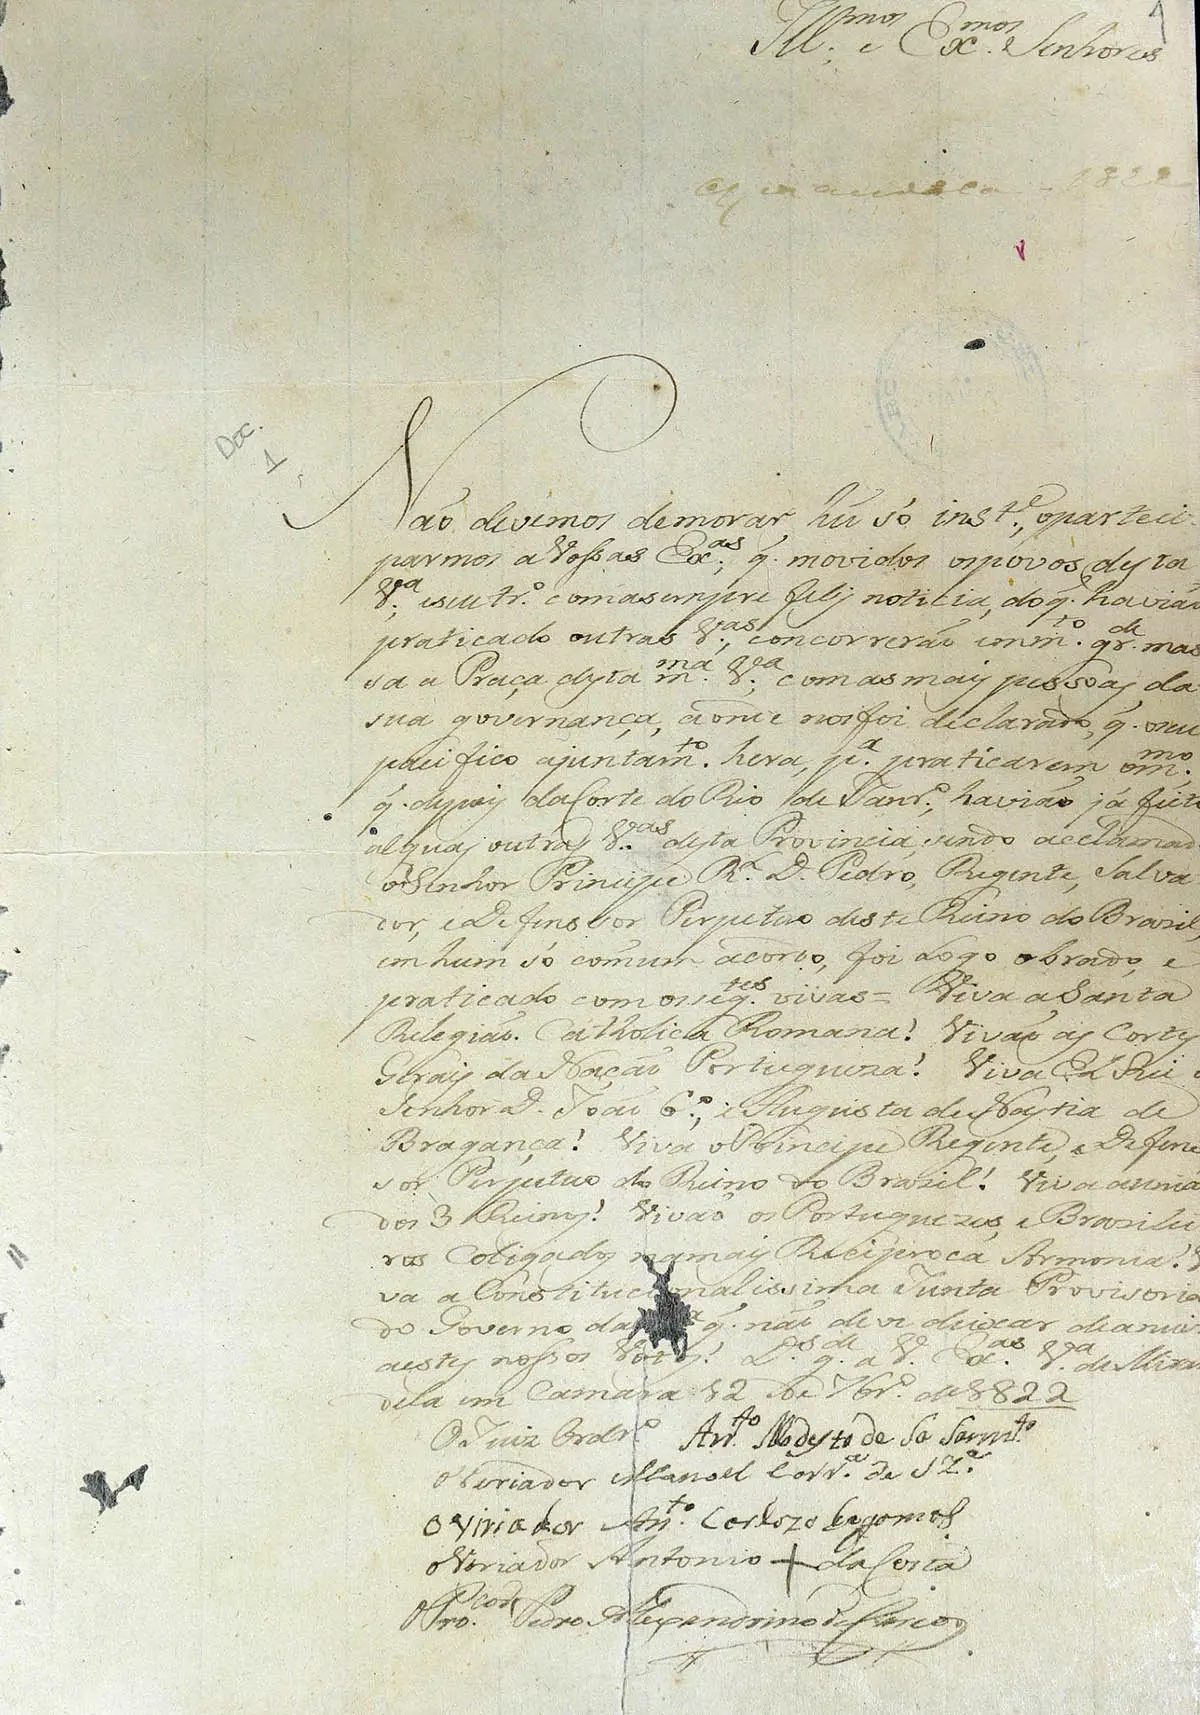 Ill.mos e Ex.mos Senhores
1822
Doc.
1
Naõ devemos demorar hũ só inst.e, o parteci-
parmos a Vossas Ex.as, q. movidos os povos desta
V.a, e seu tr.o com a sempre feliz noticia, do q. haviaõ
praticado outras V.as, concorreraõ em m.to gr.de mas
sa a Praça desta m.ma V.a, com as mais pessoas da
sua governança, aonde nos foi declarado, q. o seu
pacifico ajuntam.to hera, p.a praticarem o m.mo,
q. depois da Corte do Rio de Janr.o, haviaõ já feito
alguas outras V.as desta Provincia, sendo acclamado
o Senhor Principe R.l D. Pedro, Regente, Salva
dor, e Defensor Perpetuo deste Reino do Brazil,
em hum só comum acordo, foi logo obrado, e
praticado com os seg.tes vivas = Viva a Santa
Relegiaõ Catholica Romana! Vivaõ as Cortes
Gerais da Naçaõ Portugueza! Viva El Rei o
Senhor D. Joaõ 6.o, e Augusta Denastia de
Bragança! Viva o Principe Regente, e Defen
sor Perpetuo do Reino do Brazil! Viva a uniaõ
dos 3 Reinos! Vivaõ os Portuguezes, e Brazilei
ros Coligados na mais Reciproca Armonia! Vi
va a Constitucionalissima Junta Provisoria
do Governo da q. naõ deve deixar de anuir
a estes nossos Votos! D.s g.de a V. Ex.as V.a de Miran
dela em Camara 12 de 7br.o de 1822
O Juiz Ordr.o An.to Modesto de Sa Sarm.to
O Veriador Manoel Corr.a de Sz.a
O Viriador An.to Cardozo
O Veriador Antonio + da Costa
O Pro.cor Pedro Alexandrino de